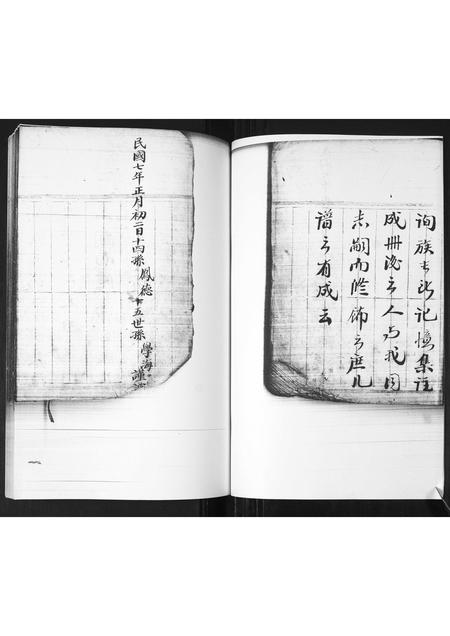 询族长所记忆集註
成册後之人与我同
志嗣而修饰之庶几
谱之有成云
民國七年正月初二日十四世孫鳳德十五世孫學海謹